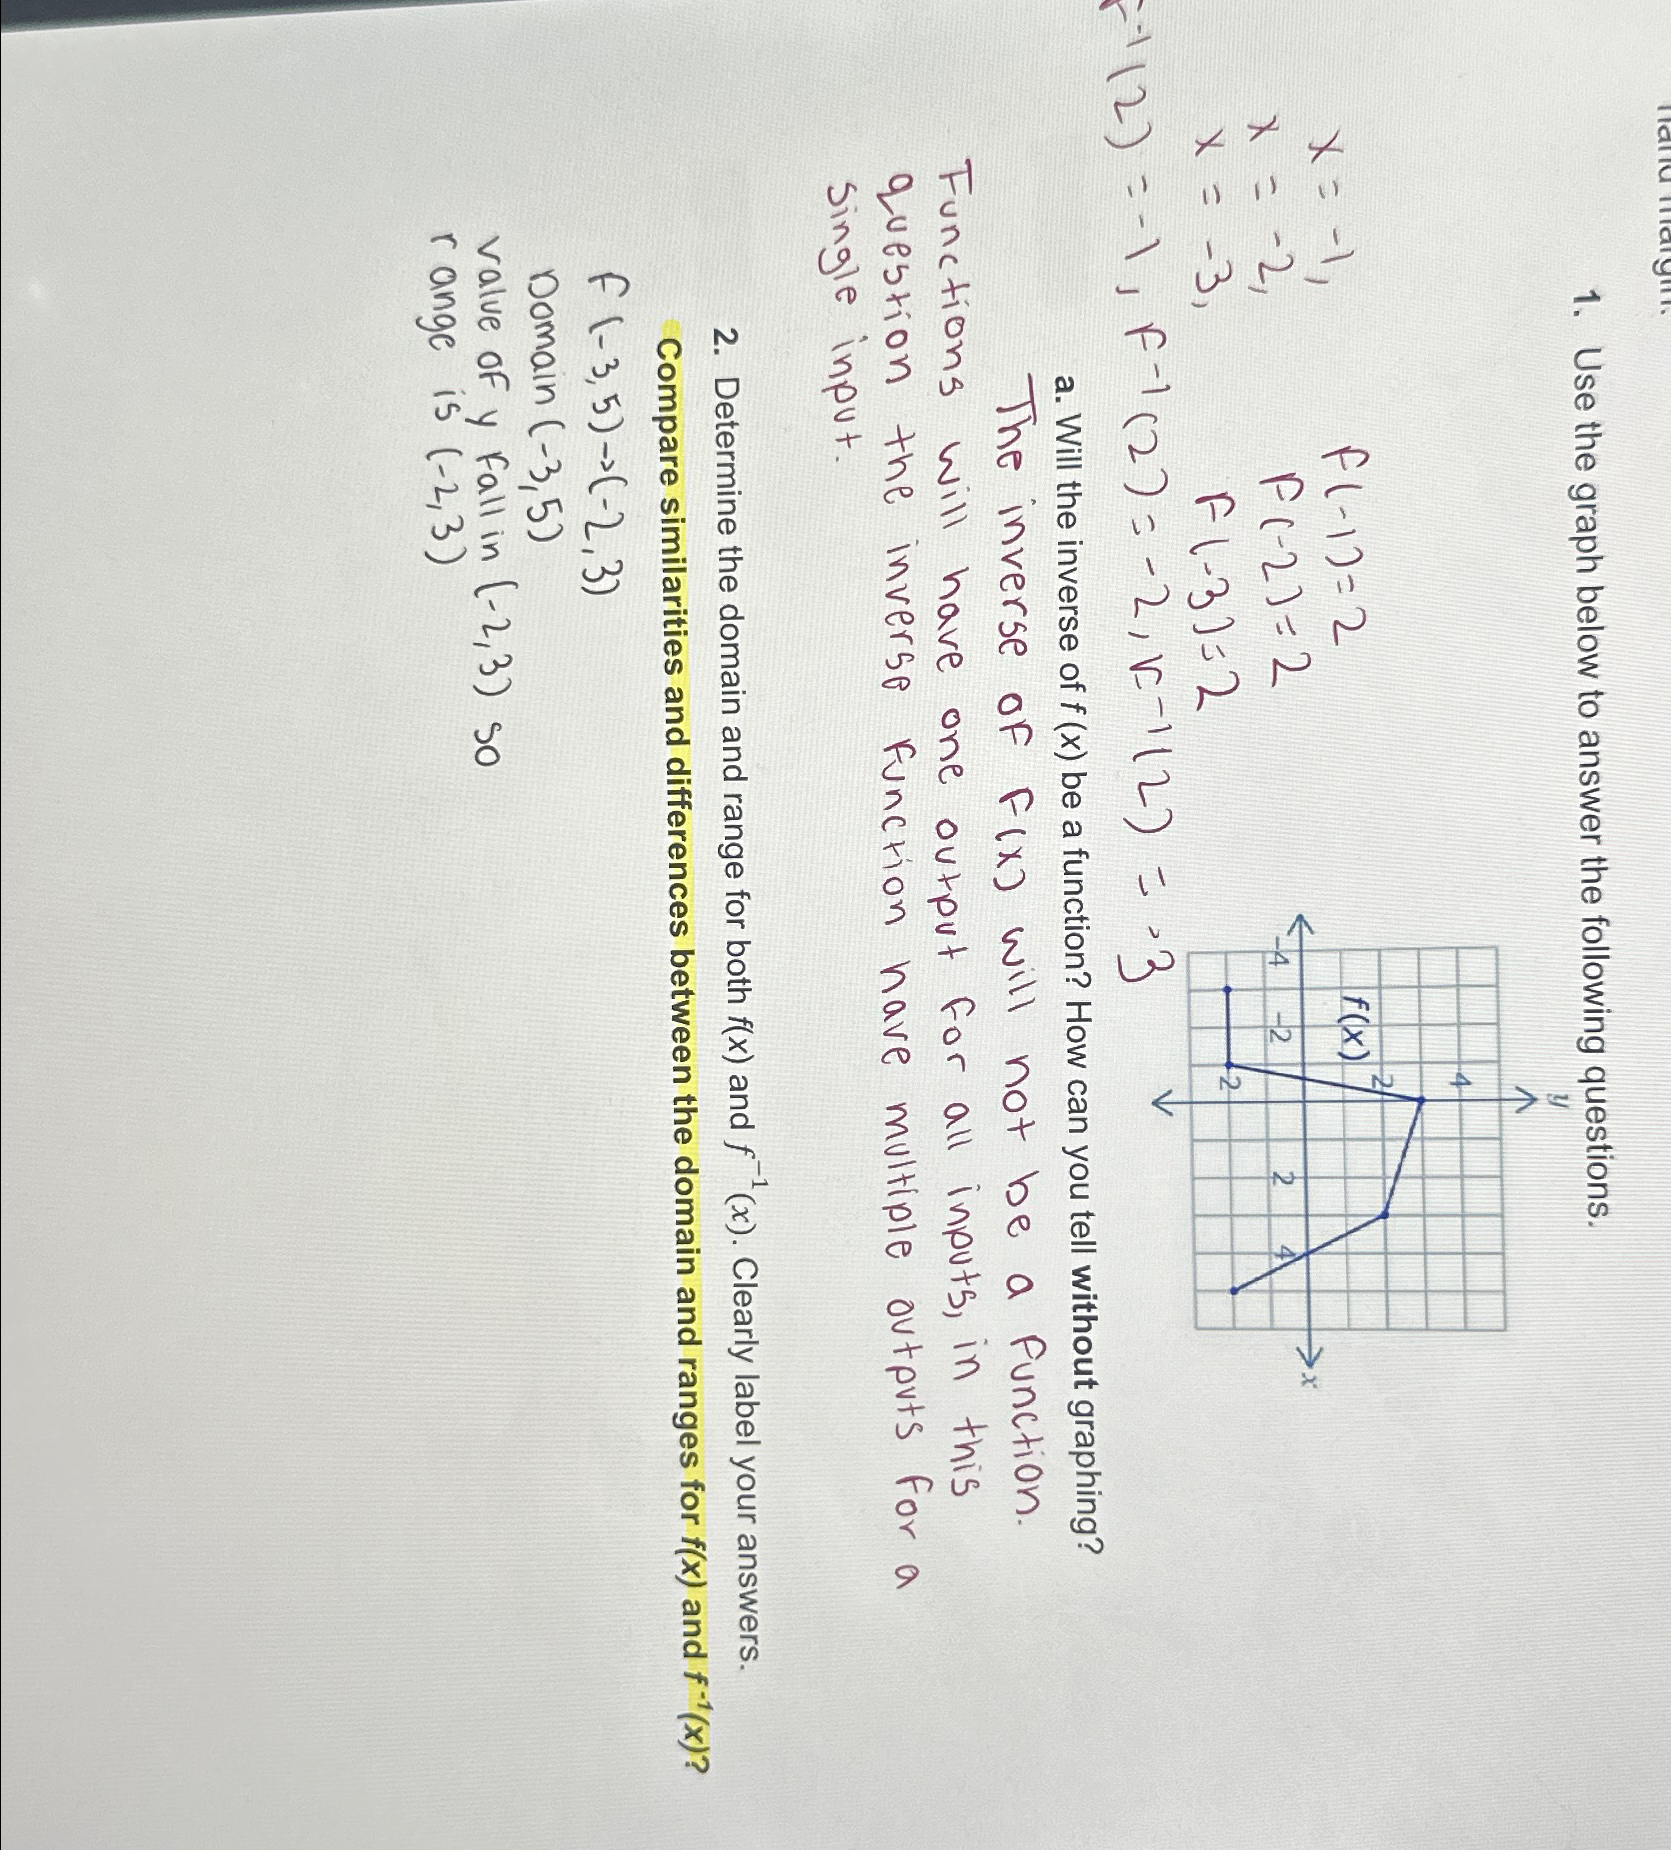 hand margin.
1. Use the graph below to answer the following questions.
y
4
2
f(x)
-4
-2
2
4
x
-2
x = -1,
F(-1) = 2
x = -2,
F(-2) = 2
x = -3,
F(-3) = 2
F⁻¹(2) = -1, F⁻¹(2) = -2, F⁻¹(2) = -3
a. Will the inverse of f (x) be a function? How can you tell without graphing?
The inverse of F(x) will not be a function.
Functions will have one output for all inputs, in this
question the inverse function have multiple outputs for a
single input.
2. Determine the domain and range for both f(x) and f⁻¹(x). Clearly label your answers.
Compare similarities and differences between the domain and ranges for f(x) and f⁻¹(x)?
F(-3,5)→(-2,3)
Domain (-3,5)
value of y fall in (-2,3) so
range is (-2,3)